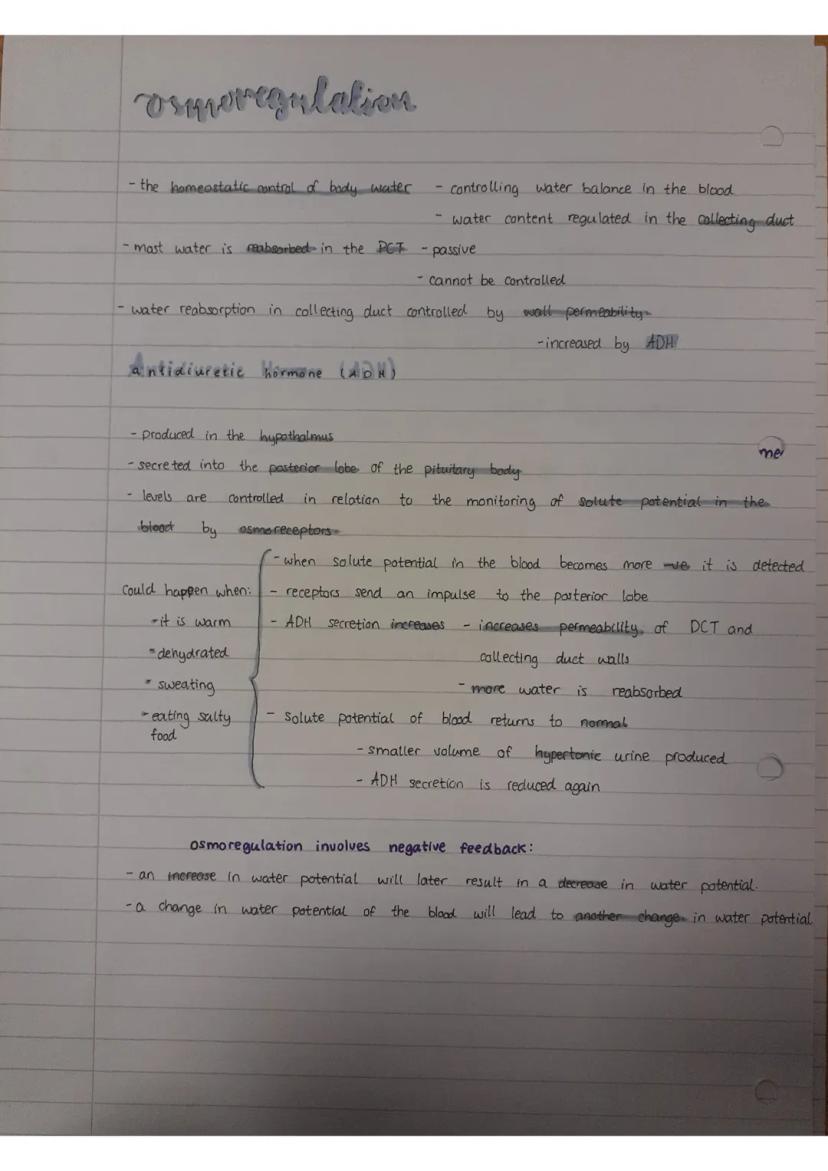 osmoregulation
- the homeostatic control of body water - controlling water balance in the blood
- water content regulated in the collecting duct
- most water is reabsorbed in the PCT - passive
- cannot be controlled
- water reabsorption in collecting duct controlled by wall permeability
- increased by ADH
Antidiuretic hormone (ADH)
- produced in the hypothalmus
me
- secreted into the posterior lobe of the pituitary body
- levels are controlled in relation to the monitoring of solute potential in the
blood by osmoreceptors
- when solute potential in the blood becomes more -ve it is detected
could happen when: - receptors send an impulse to the posterior lobe
- it is warm - ADH secretion increases - increases permeability of DCT and
- dehydrated collecting duct walls
- sweating - more water is reabsorbed
- eating salty - solute potential of blood returns to normal
food
- smaller volume of hypertonic urine produced
- ADH secretion is reduced again
osmoregulation involves negative feedback:
- an increase in water potential will later result in a decrease in water potential.
- a change in water potential of the blood will lead to another change in water potential